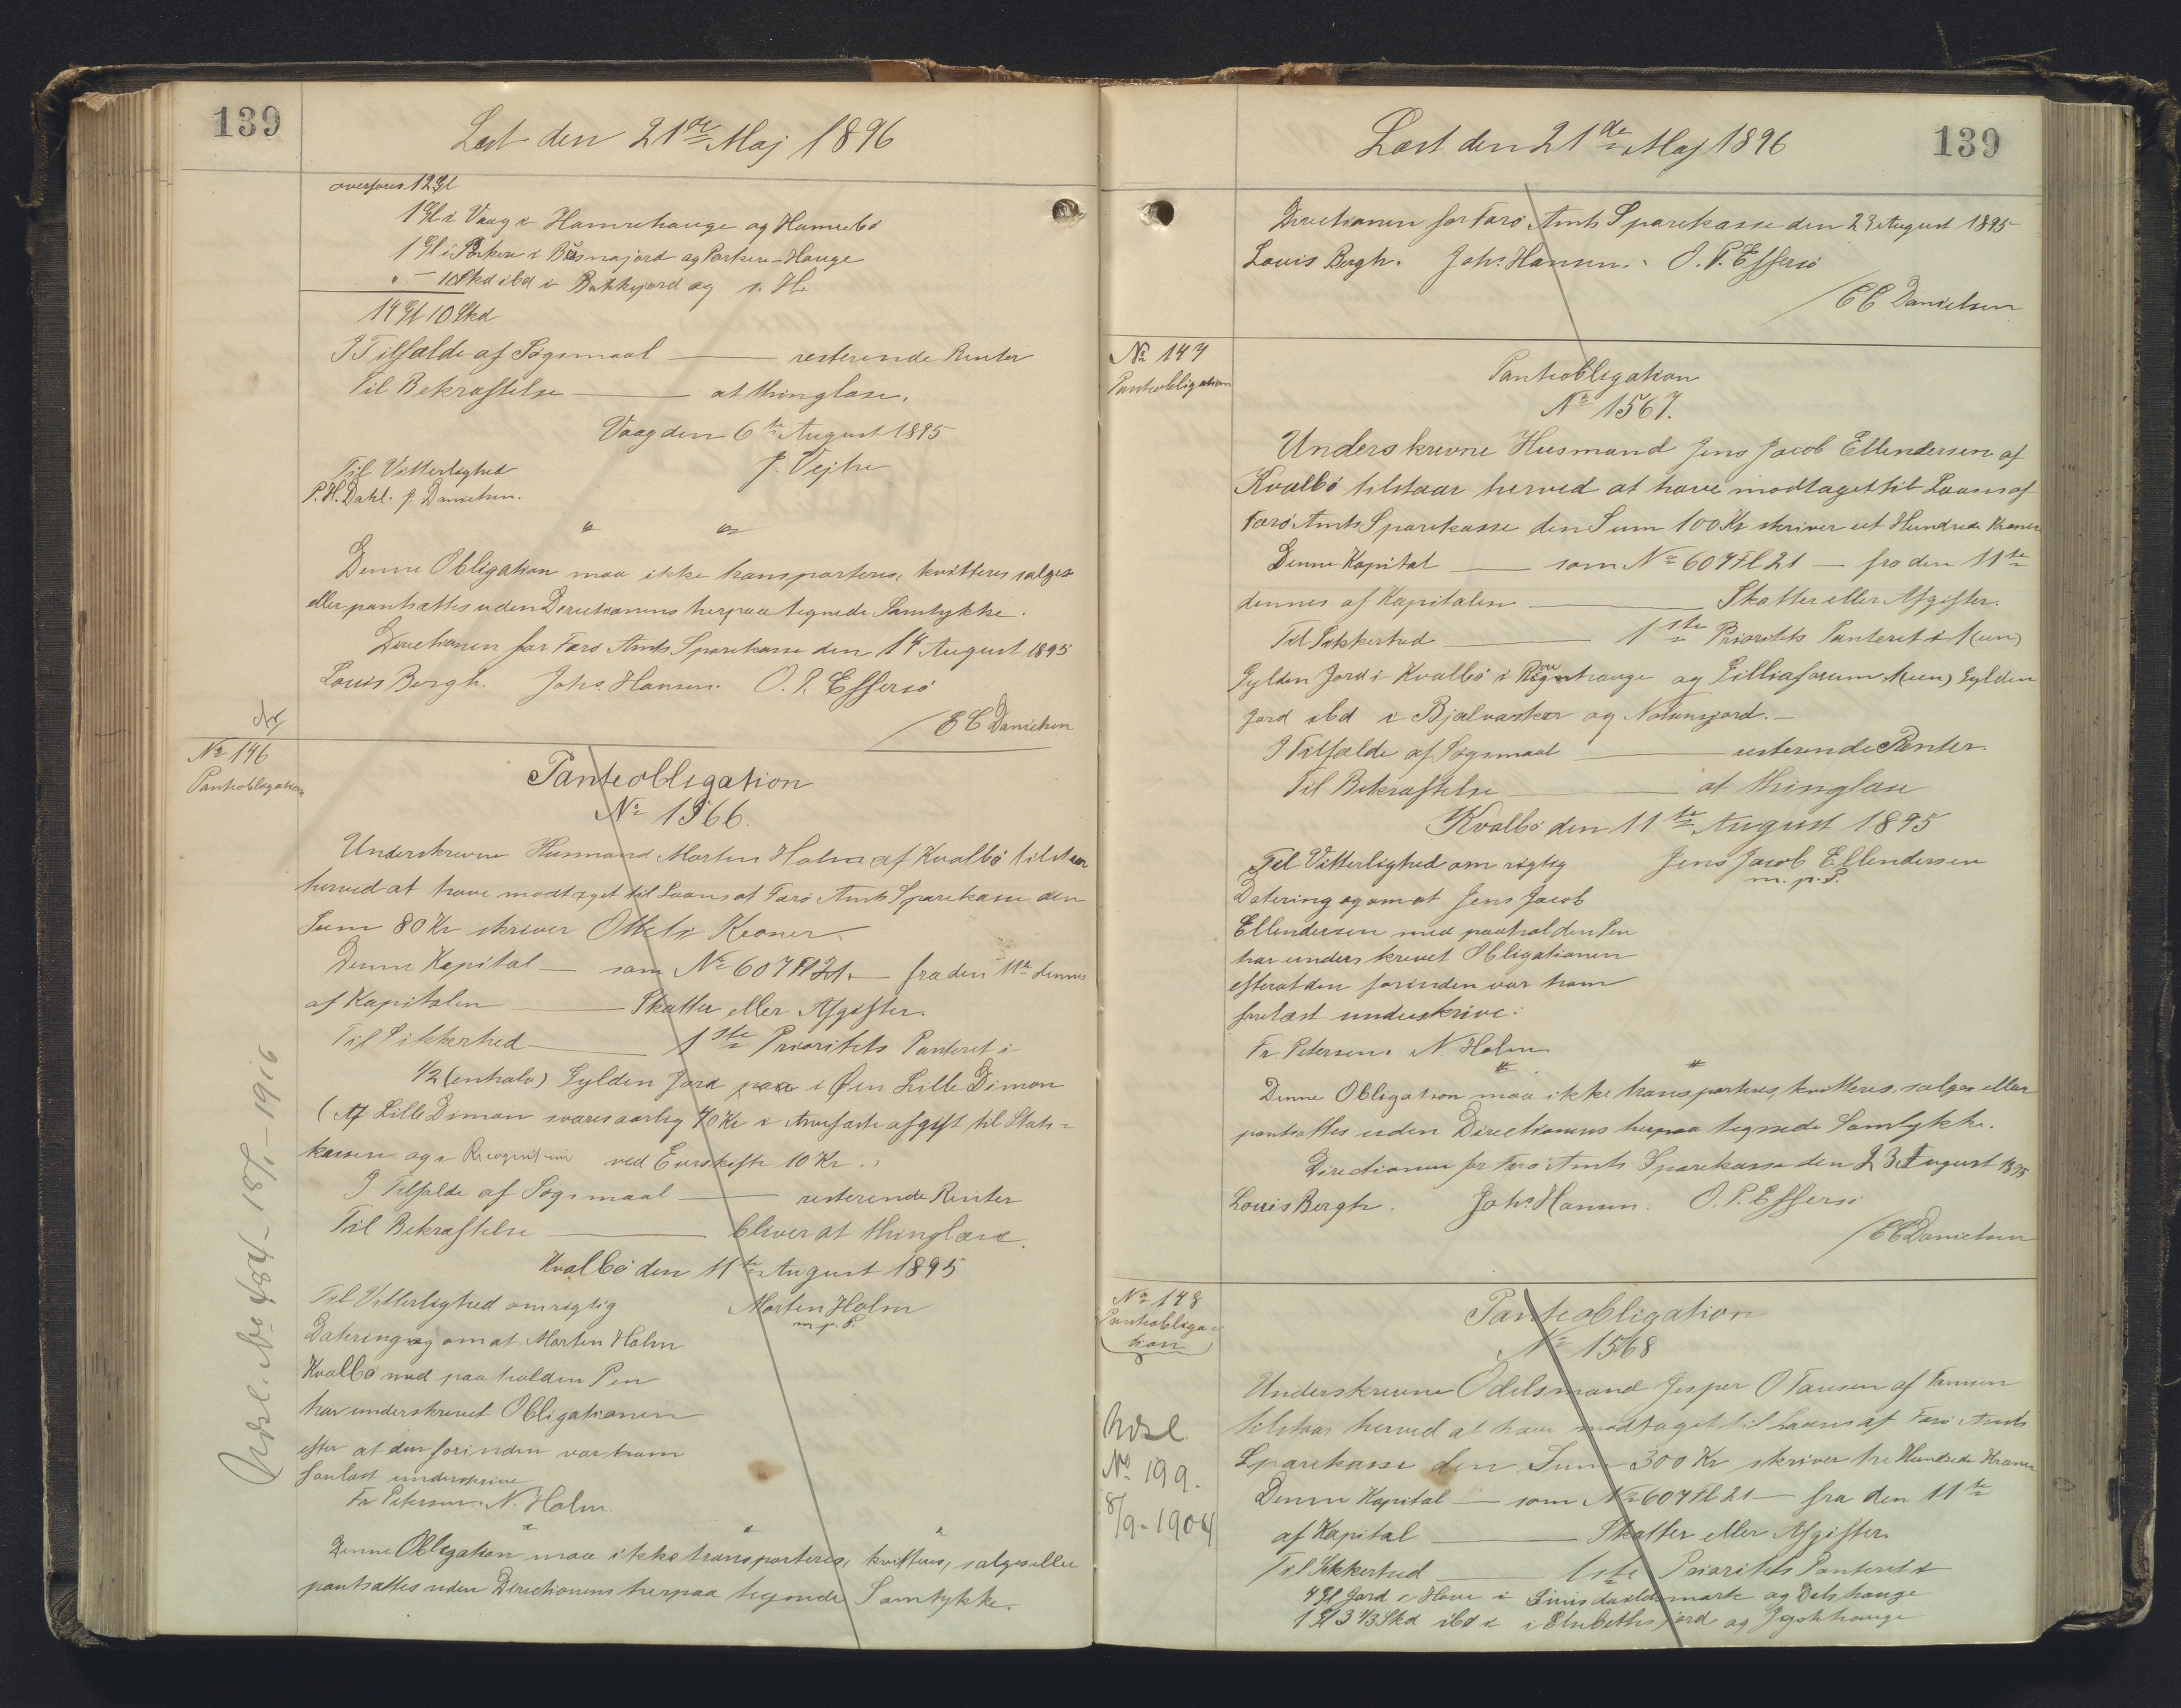 139
Læst den 21de Maj 1896
overføres 12 Gl
1 Gl i Vaag i Hamrehauge og Hamrebø
1 Gl i Porkere i Bøsmajord og Porkere-Hauge
" — 10 Skd ibd i Bakkejord og s. H.
14 Gl 10 Skd
I Tilfælde af Søgsmaal — resterende Renter
Til Bekræftelse — at thinglæse.
Vaag den 6te August 1895
Til Vitterlighed J. Vejhe
P. H. Dahl. J. Danielsen.
" "
Denne Obligation maa ikke transporteres, kvitteres sælges
eller pantsættes uden Directionens herpaa tegnede Samtykke.
Directionen for Færø Amts Sparekasse den 14 August 1895
Louis Bergh. Johs. Hansen. O. P. Effersø
/ C C Danielsen
No 146
Panteobligation
Panteobligation
No 1566.
Underskrevne Husmand Morten Holm af Kvalbø tilstaar
herved at have modtaget til Laans af Færø Amts Sparekasse den
Sum 80 Kr skriver Otteti Kroner.
Denne Kapital — som No 607 Fl 21. — fra den 11te dennes
af Kapitalen — Skatter eller Afgifter.
Til Sikkerhed — 1ste Prioritets Panteret i
1/2 (enhalv) Gylden Jord paa i Øen Lille Dimon
(Af Lille Dimon svares aarlig 70 Kr i Arvefæste afgift til Stats=
kassen og i Recognition ved Eierskifte 10 Kr.)
I Tilfælde af Søgsmaal — resterende Renter
Til Bekræftelse — bliver at thinglæse.
Kvalbø den 11te August 1895
Til Vitterlighed om rigtig Morten Holm
m. p. P.
Datering og om at Morten Holm
Kvalbø med paaholden Pen
har underskrevet Obligationen
efter at den forinden var ham
forelæst underskrive
Fr Petersen. N. Holm.
" " "
Denne Obligation maa ikke transporteres, kvitteres, sælges eller
pantsættes uden Directionens herpaa tegnede Samtykke.
Udsl. No 484 - 18/1 - 1916
Læst den 21de Maj 1896
139
Directionen for Færø Amts Sparekasse den 23 August 1895
Louis Bergh. Johs. Hansen. O. P. Effersø
/ C C Danielsen
No 147
Panteobligation
Panteobligation
No 1567.
Underskrevne Husmand Jens Jacob Ellendersen af
Kvalbø tilstaar herved at have modtaget til Laans af
Færø Amts Sparekasse den Sum 100 Kr skriver et Hundrede Kroner
Denne Kapital — som No 607 Fl 21 — fra den 11te
dennes af Kapitalen — Skatter eller Afgifter.
Til Sikkerhed — 1ste Prioritets Panteret i 1 (een)
Gylden Jord i Kvalbø i hauge og Lilliaforum 1 (een) Gylden
Jord ibd i Bjælvasker og Nolsensjord. —
I Tilfælde af Søgsmaal — resterende Renter.
Til Bekræftelse — at thinglæse
Kvalbø den 11te August 1895
Til Vitterlighed om rigtig Jens Jacob Ellendersen
m. p. P.
Datering og om at Jens Jacob
Ellendersen med paaholden Pen
har underskrevet Obligationen
efterat den forinden var ham
forelæst underskrive:
Fr. Petersen. N. Holm
" "
Denne Obligation maa ikke transporteres, kvitteres, sælges eller
pantsættes uden Directionens herpaa tegnede Samtykke.
Directionen for Færø Amts Sparekasse den 23 August 1895
Louis Bergh. Johs. Hansen. O. P. Effersø
/ C C Danielsen
No 148
Panteobliga=
tion
Panteobligation
No 1568
Underskrevne Odelsmand Jesper O Tausen af Famien
tilstaar herved at have modtaget til Laans af Færø Amts
Sparekasse den Sum 300 Kr skriver tre Hundrede Kroner
Denne Kapital — som No 607 Fl 21 — fra den 11te
af Kapital — Skatter eller Afgifter
Til Sikkerhed — 1ste Prioritets Panteret i
4 Gl Jord i Hove i mark og Dalshauge
1 Gl 3 1/3 Skd ibd i i Elsebethsjord og hauge
Udsl.
No 199.
8/9 - 1904